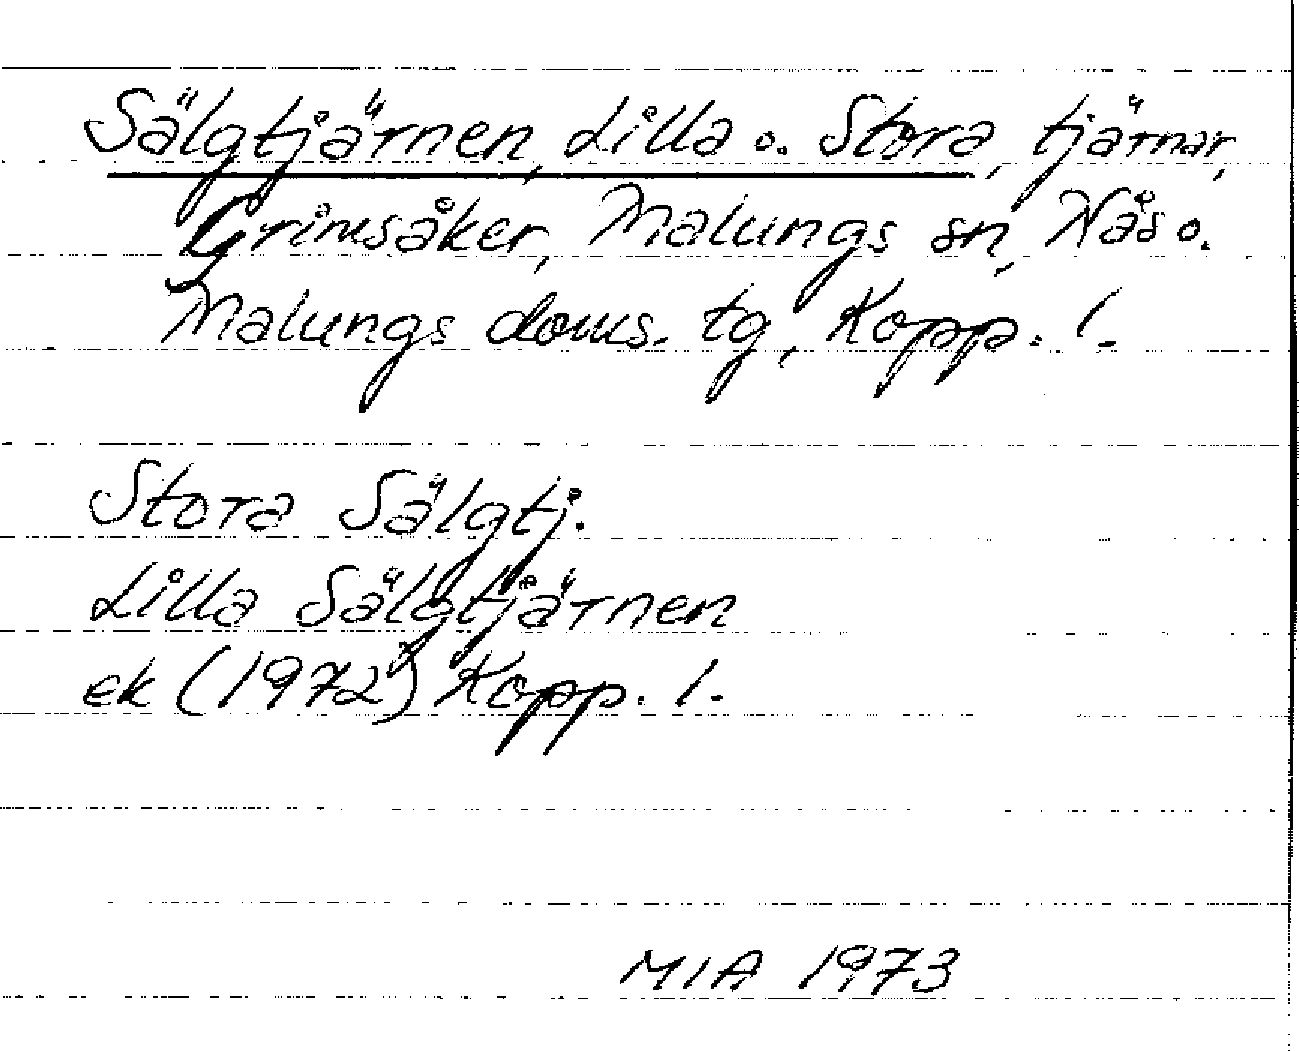 Sälgtjärnen, Lilla o. Stora, tjärnar,
Grimsåker, Malungs sn, Nås o.
Malungs doms. tg, Kopp. l.
Stora Sälgtj.
Lilla Sälgtjärnen
ek (1972) Kopp. l.
MIA 1973